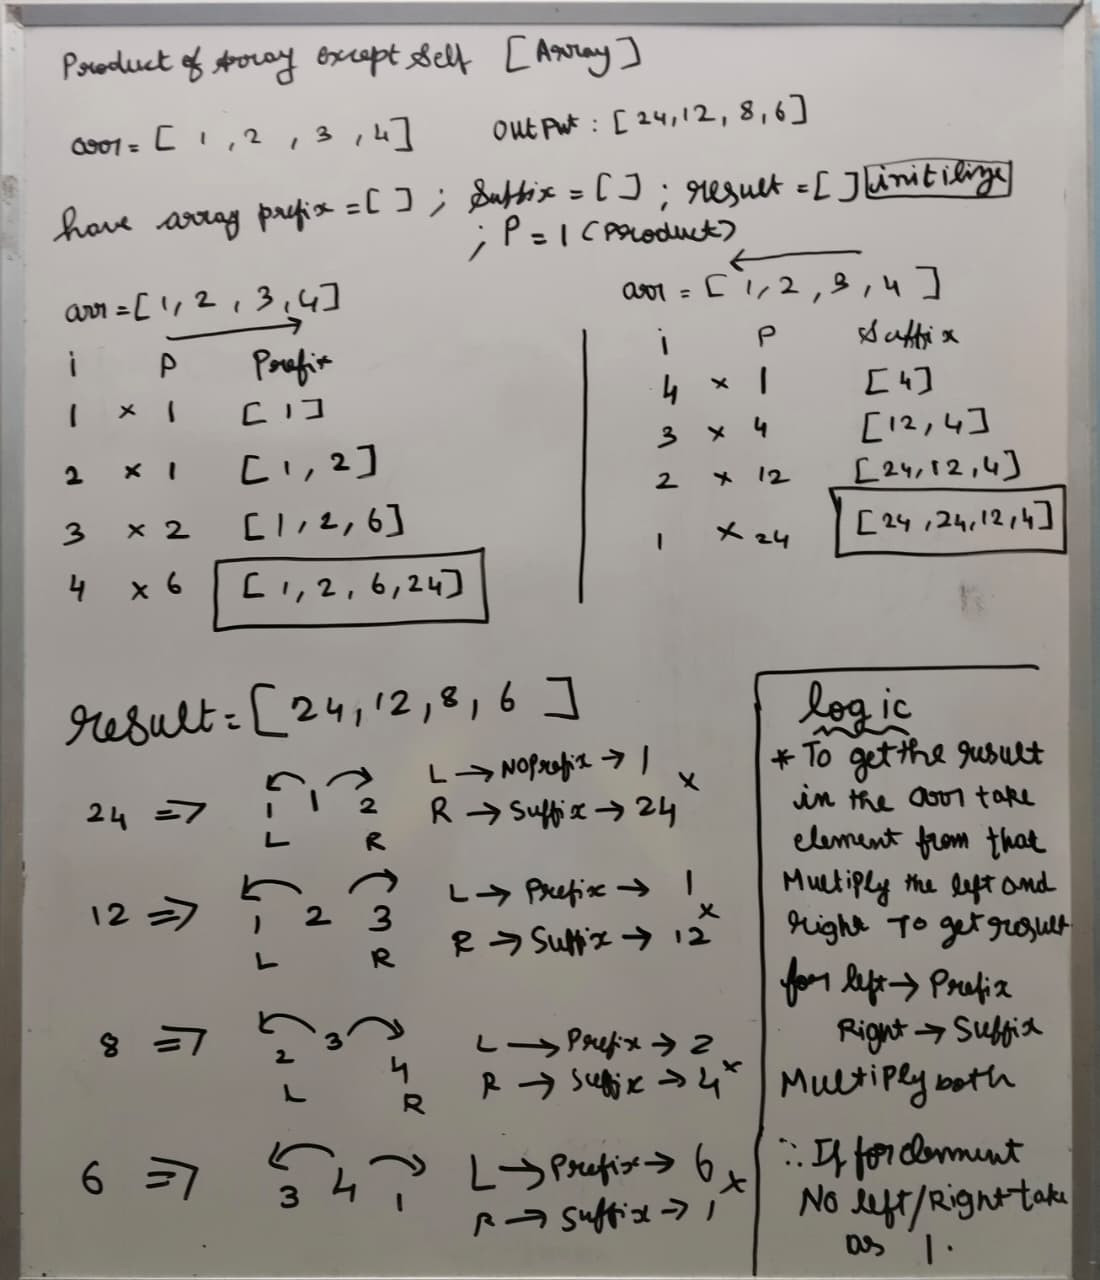 Product of Array Except Self [Array]
arr = [ 1 , 2 , 3 , 4 ] OUTPUT : [ 24, 12, 8, 6 ]
have array prefix = [ ] ; Suffix = [ ] ; result = [ ] initilize
; P = 1 (Product)
arr = [ 1, 2 , 3 , 4 ]
i P Prefix
1 × 1 [ 1 ]
2 × 1 [ 1 , 2 ]
3 × 2 [ 1 , 2 , 6 ]
4 × 6 [ 1 , 2 , 6 , 24 ]
arr = [ 1, 2 , 3 , 4 ]
i P Suffix
4 × 1 [ 4 ]
3 × 4 [ 12 , 4 ]
2 × 12 [ 24, 12 , 4 ]
1 × 24 [ 24 , 24, 12 , 4 ]
result = [ 24, 12, 8, 6 ]
24 => 1 1 2 L → NO Prefix → 1 ×
L R R → Suffix → 24
12 => 1 2 3 L → Prefix → 1 ×
L R R → Suffix → 12
8 => 2 3 4 L → Prefix → 2
L R R → Suffix → 4 ×
6 => 3 4 1 L → Prefix → 6 ×
R → Suffix → 1
logic
* To get the result
in the arr take
element from that
Multiply the left and
right To get result
for left → Prefix
Right → Suffix
Multiply both
∴ If for element
No left/Right take
as 1.